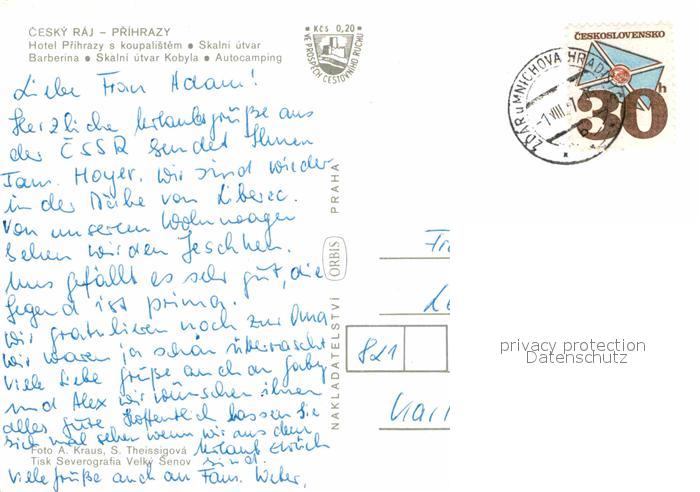 ČESKÝ RÁJ – PŘÍHRAZY
Hotel Příhrazy s koupalištěm • Skalní útvar
Barberina • Skalní útvar Kobyla • Autocamping
Kčs 0,20
VE PROSPĚCH CESTOVNÍHO RUCHU
ČESKOSLOVENSKO
30h
ŽĎÁR u MNICHOVA HRAD
-1.VIII.
Liebe Frau Adam!
Herzliche Urlaubsgrüße aus
der ČSSR sendet Ihnen
Fam. Hoyer. Wir sind wieder
in der Nähe von Liberec.
Von unserem Wohnwagen
sehen wir den Jeschken.
Uns gefällt es sehr gut, die
Gegend ist prima.
Wir gratulieren noch zur Oma
wir waren ja schön überrascht
Viele liebe Grüße auch an Gaby
und Alex wir wünschen ihnen
alles Gute. Hoffentlich lassen Sie
sich mal sehen wenn wir aus dem
Urlaub zurück
sind.
Viele Grüße auch an Fam. Weber.
Foto A. Kraus, S. Theissigová
Tisk Severografia Velký Šenov
NAKLADATELSTVÍ ORBIS PRAHA
Fr
821
Karl
privacy protection
Datenschutz